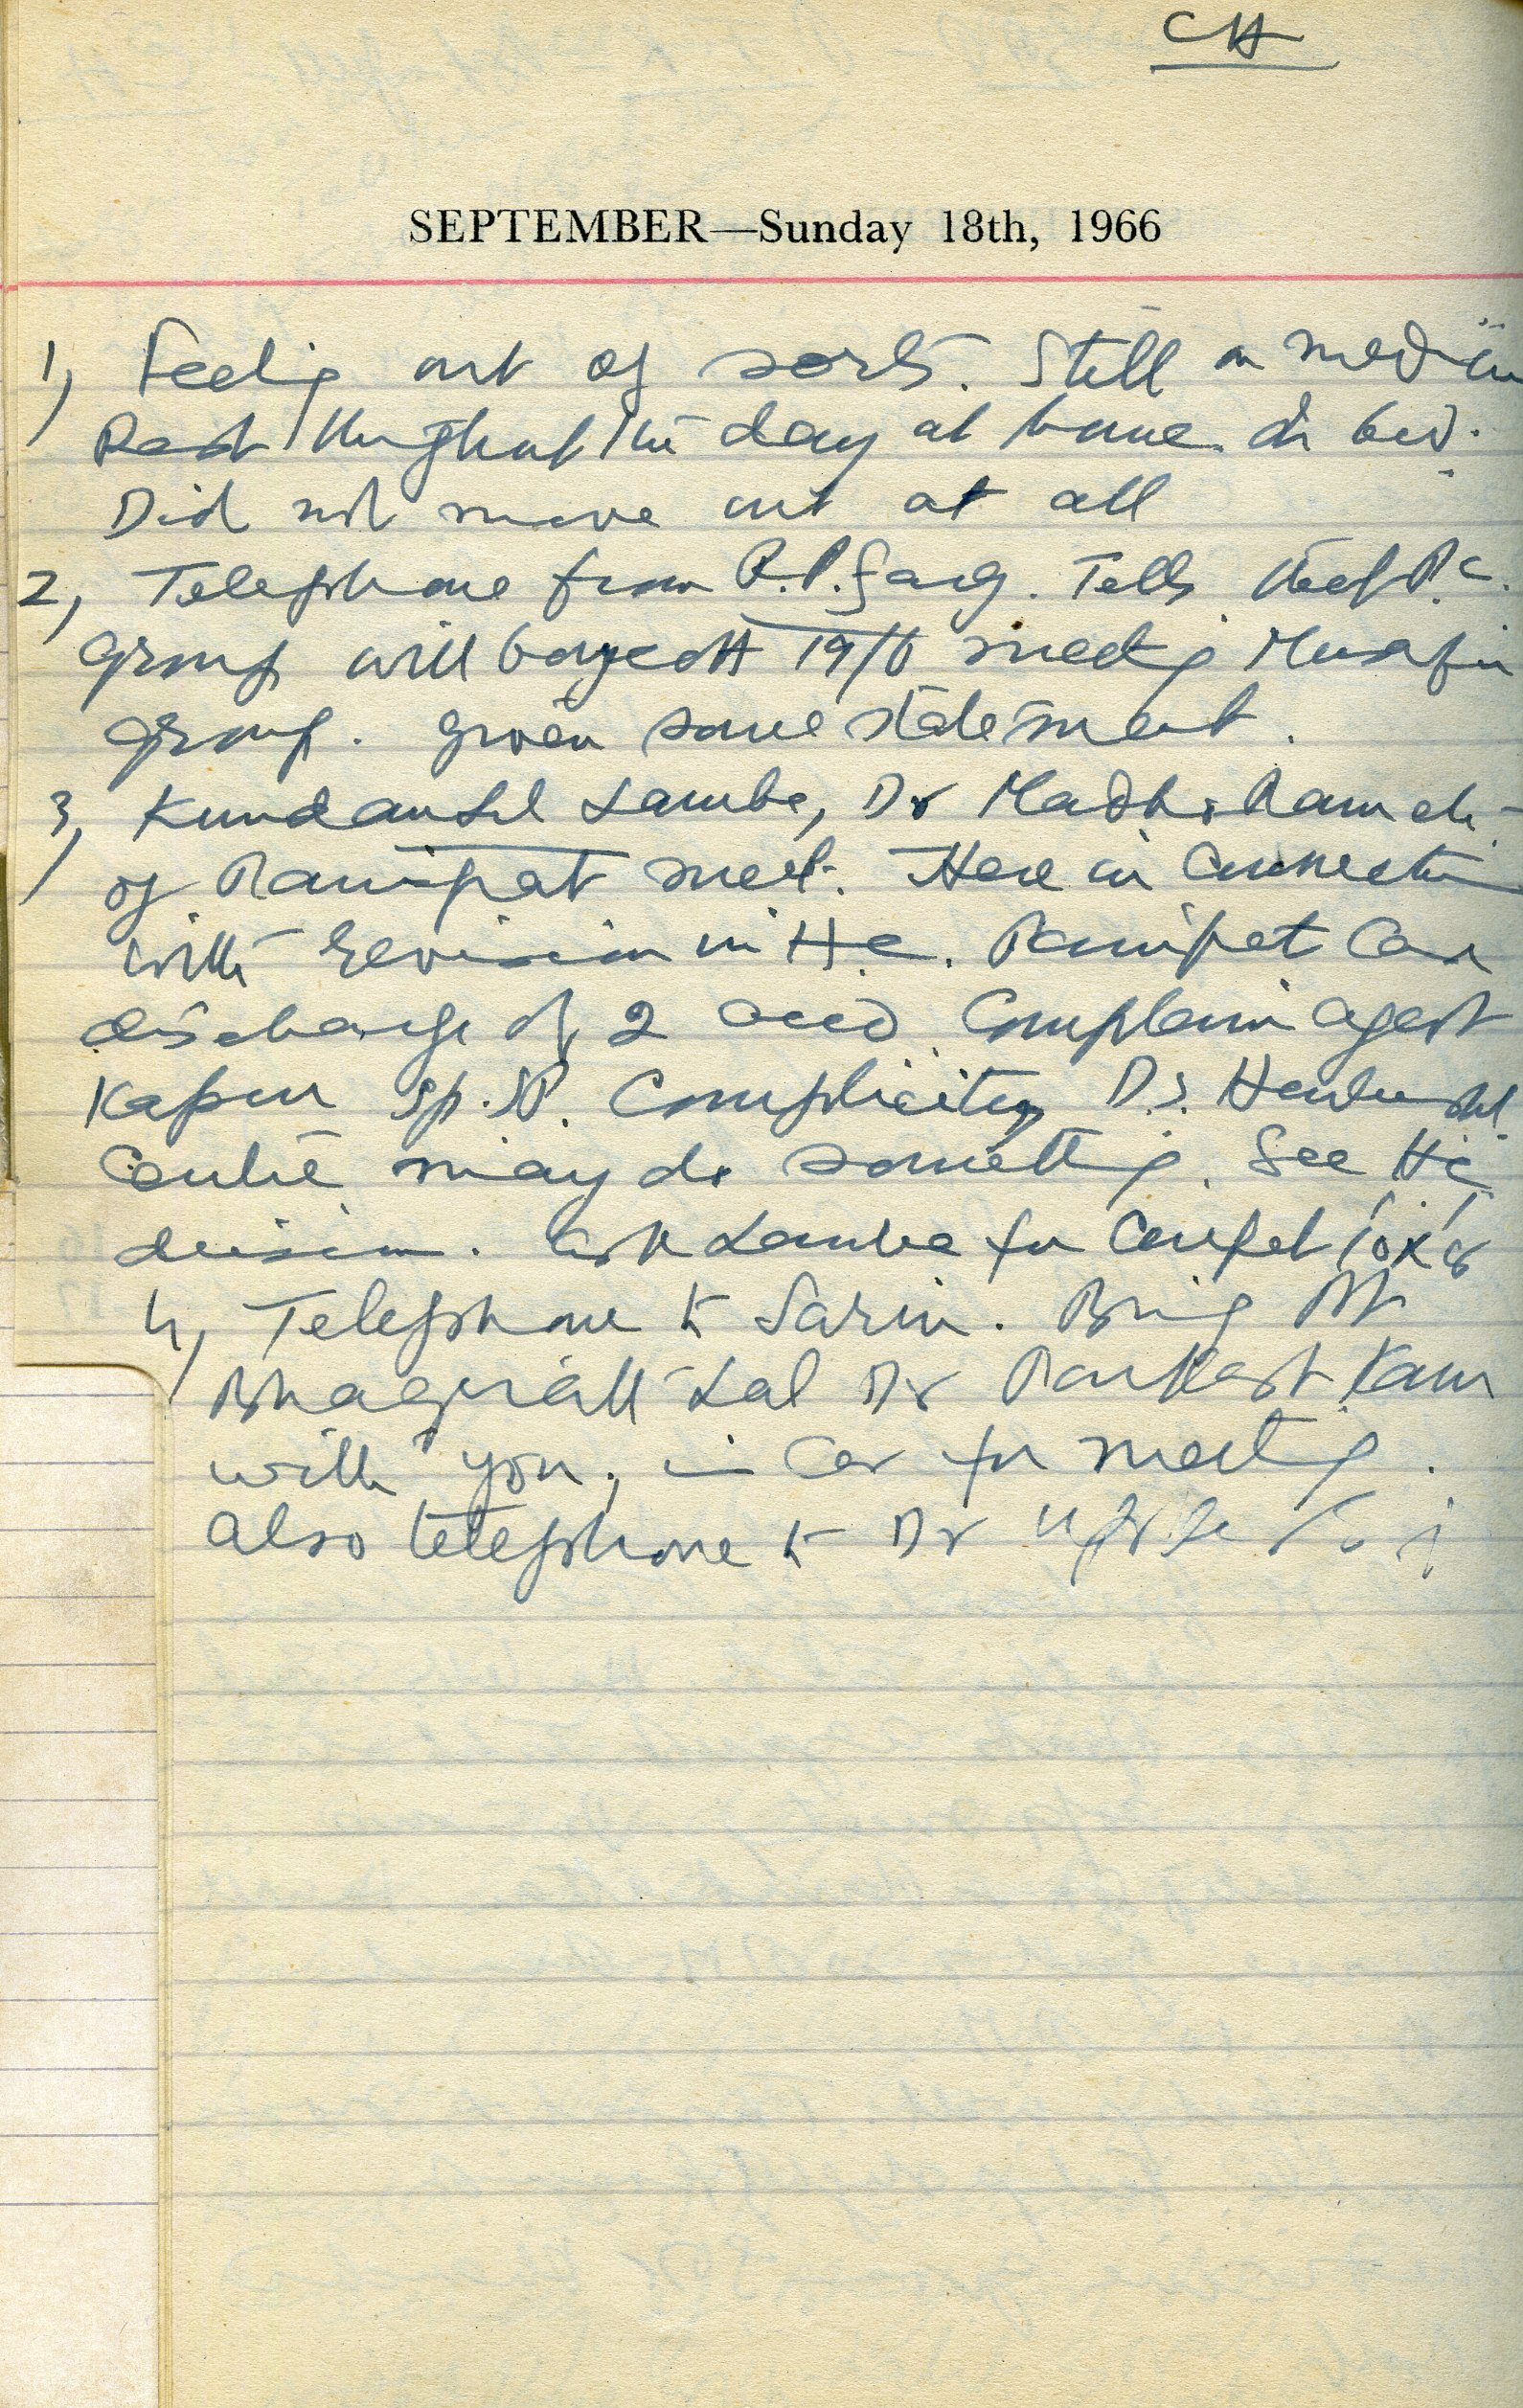 CH
SEPTEMBER—Sunday 18th, 1966
1, Feeling out of sorts. Still on medicin
Rest throughout the day at home in bed.
Did not move out at all
2, Telephone from R.P. Garg. Tells that P.C.
group will boycott 19/6 meeting Musafir
group. given some statement.
3, Kundanlal Lamba, Dr Madho Ram etc
of Panipat meet. Here in connection
with revision in H.C. Panipat Case
discharge of 2 accd Complain agest
Kapur Sp. P.P. Complicity D.S.
Centre may do something. See H.C.
decision. ask Lamba for Carpet 10'x8'
4, Telephone to Sarin. Bring
Bhagirath Lal Dr Parkash Kaur
with you, in Car for meeting.
also telephone to Dr